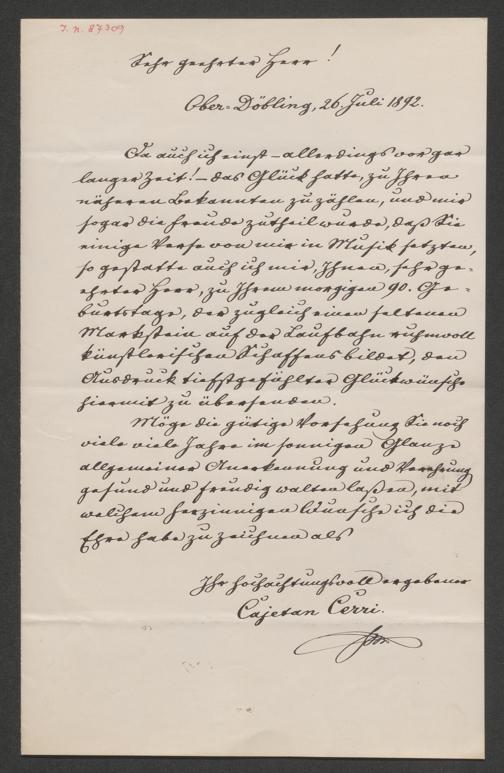 I. N. 87309
Sehr geehrter Herr!
Ober-Döbling, 26. Juli 1892.
Da auch ich einst – allerdings vor gar
langer Zeit! – das Glück hatte, zu Ihren
näheren Bekannten zu zählen, und mir
sogar die Freude zutheil wurde, daß Sie
einige Verse von mir in Musik setzten,
so gestatte auch ich mir, Ihnen, sehr ge-
ehrter Herr, zu Ihrem morgigen 90. Ge-
burtstage, der zugleich einen seltenen
Markstein auf der Laufbahn ruhmvoll
künstlerischen Schaffens bildet, den
Ausdruck tiefstgefühlter Glückwünsche
hiermit zu übersenden.
Möge die gütige Vorsehung Sie noch
viele viele Jahre im sonnigen Glanze
allgemeiner Anerkennung und Verehrung
gesund und freudig walten laßen, mit
welchem herzinnigen Wunsche ich die
Ehre habe zu zeichnen als
Ihr hochachtungsvoll ergebener
Cajetan Cerri.